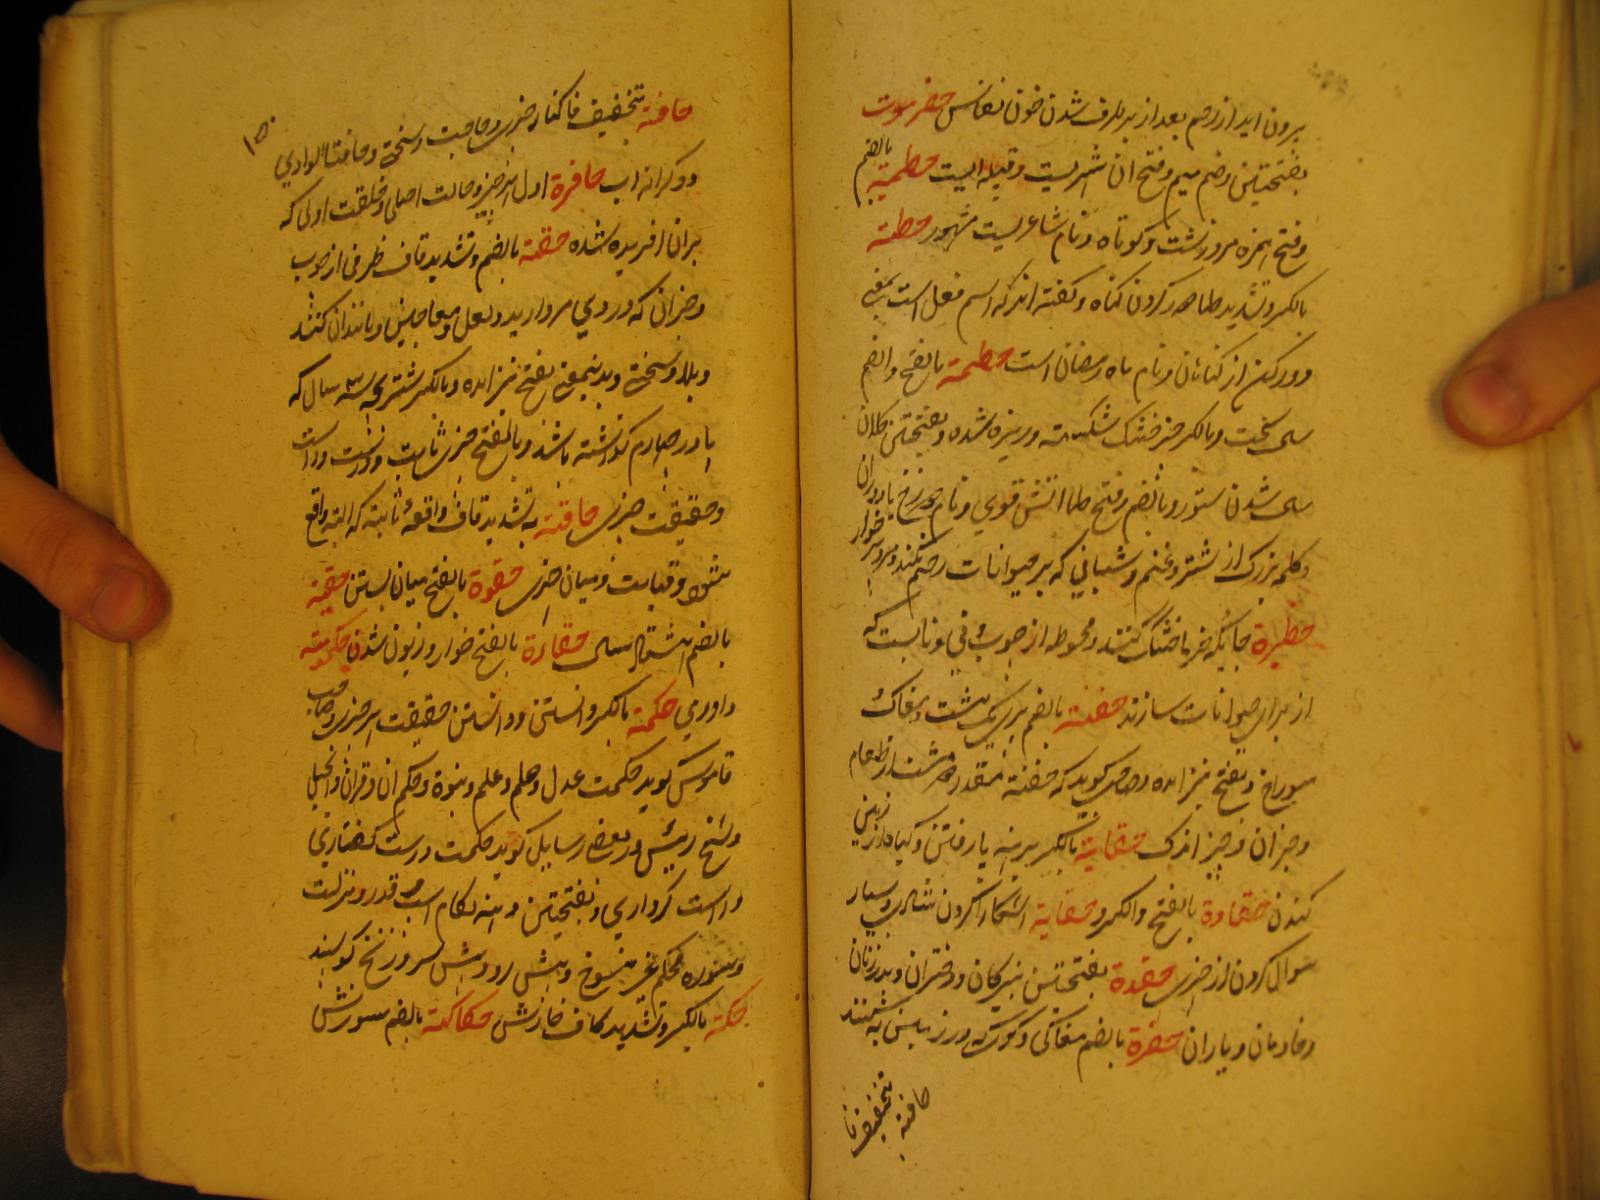 برون اید از رحم بعد از برطرف شدن خون نفاس حضرموت
بفتحتین و ضم میم و فتح ان شهریست و قبیله ایست حطیئة بالضم
و فتح همزه مرد زشت و کوتاه و نام شاعریست مشهور حطة
بالکسر و تشدید طا طاهر کردن کناه و کفته اند که اسم فعل است بمعنی
دور کردن از کناهان و نام ماه رمضان است حطمة بالفتح و الضم
سال سخت و بالکسر چیز خشک شکسته و ریزه شده و بفتحتین کلان
سال شدن ستور و بالضم و فتح طا اتش قوی و نام دوزخ یا در ان
و کله بزرک از شتر و غنم و شبانی که بر حیوانات رحم نکند و مرد پرخوار
حظیرة جایکه خرما خشک کنند و محوطه از چوب و نی و نابست که
از برای حیوانات سازند حفنة بالضم پری یک مشت و مغاک
سوراخ و بفتح نیز امده و صاحب کوید که حفنة مقدار دو مشت از طعام
و جز ان و چیز اندک حفایة بالکسر برهنه پا رفتن و کیاه از زمین
کندن حفاوة بالفتح و الکسر و حفایة اشکارا کردن شادی و بسیار
سوال کردن از چیزی حفدة بفتحتین نبیرکان و دختران و پدر زنان
و خادمان و یاران حفرة بالضم مغاکی و کوی که در زمین
حافة بتخفیف فا
۱۵۰
حافة بتخفیف فا کنار چیزی و حاجت و سختی و حافتا الوادي
دو کرانه اب حافرة اول هر چیز و حالت اصلی و خلقت اولی که
بران افریده شده حقة بالضم و تشدید قاف ظرفی از چوب
و جز ان که در وی مروارید و لعل و معاجین و مانند ان کنند
و بلا و سختی و بدینمعنی بفتح نیز امده و بالکسر شتر بچه سه سال که
پا در چهارم کذاشته باشد و بالفتح چیزی ثابت و درست و راست
و حقیقت چیزی حاقة به تشدید قاف واقعهٔ ثابته که البته واقع
شود و قیامت و میان چیزی حقوة بالفتح میان بستن حقبة
بالضم هشتاد سال حقارة بالفتح خوار و زبون شدن حکومة
داوري حکمة بالکسر دانستن و دانستن حقیقت هر چیزی و صاحب
قاموس کوید حکمت عدل و حلم و علم و نبوة و حکم ان و قران و انجیل
و شیخ رئیس در بعضی رسایل کوید حکمت درست کفتاري
و راست کرداري و بفتحتین دهنه لکام اسب و قدر و منزلت
و سوره محکم غیر منسوخ و پیش رو و پیش سر و زنخ کوسپند
حکة بالکسر و تشدید کاف خارش حکاکة بالضم سوزش